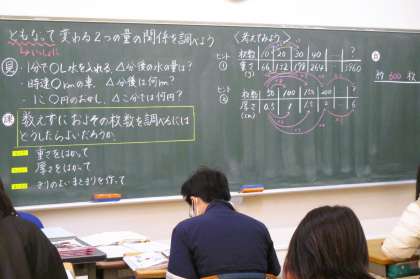 ともなって変わる2つの量の関係を調べよう
・1分で〇L水を入れる、△分後の水の量は?
・時速〇kmの車、△分後は何km?
・1こ〇円のおかし、△こ分は何円?
数えずにおよその枚数を調べるには
どうしたらよいだろうか。
重さをはかって
厚さをはかって
きりのよいまとまりを作って
〈考えてみよう。〉
ヒント
①
枚数 10 20 30 40 … ?
重さ 66 132 198 264 … 3960
(g)
ヒント
②
枚数 50 100 150 200 … ?
厚さ 0.5 1 1.5 2 … 6
(cm)
約 600 枚